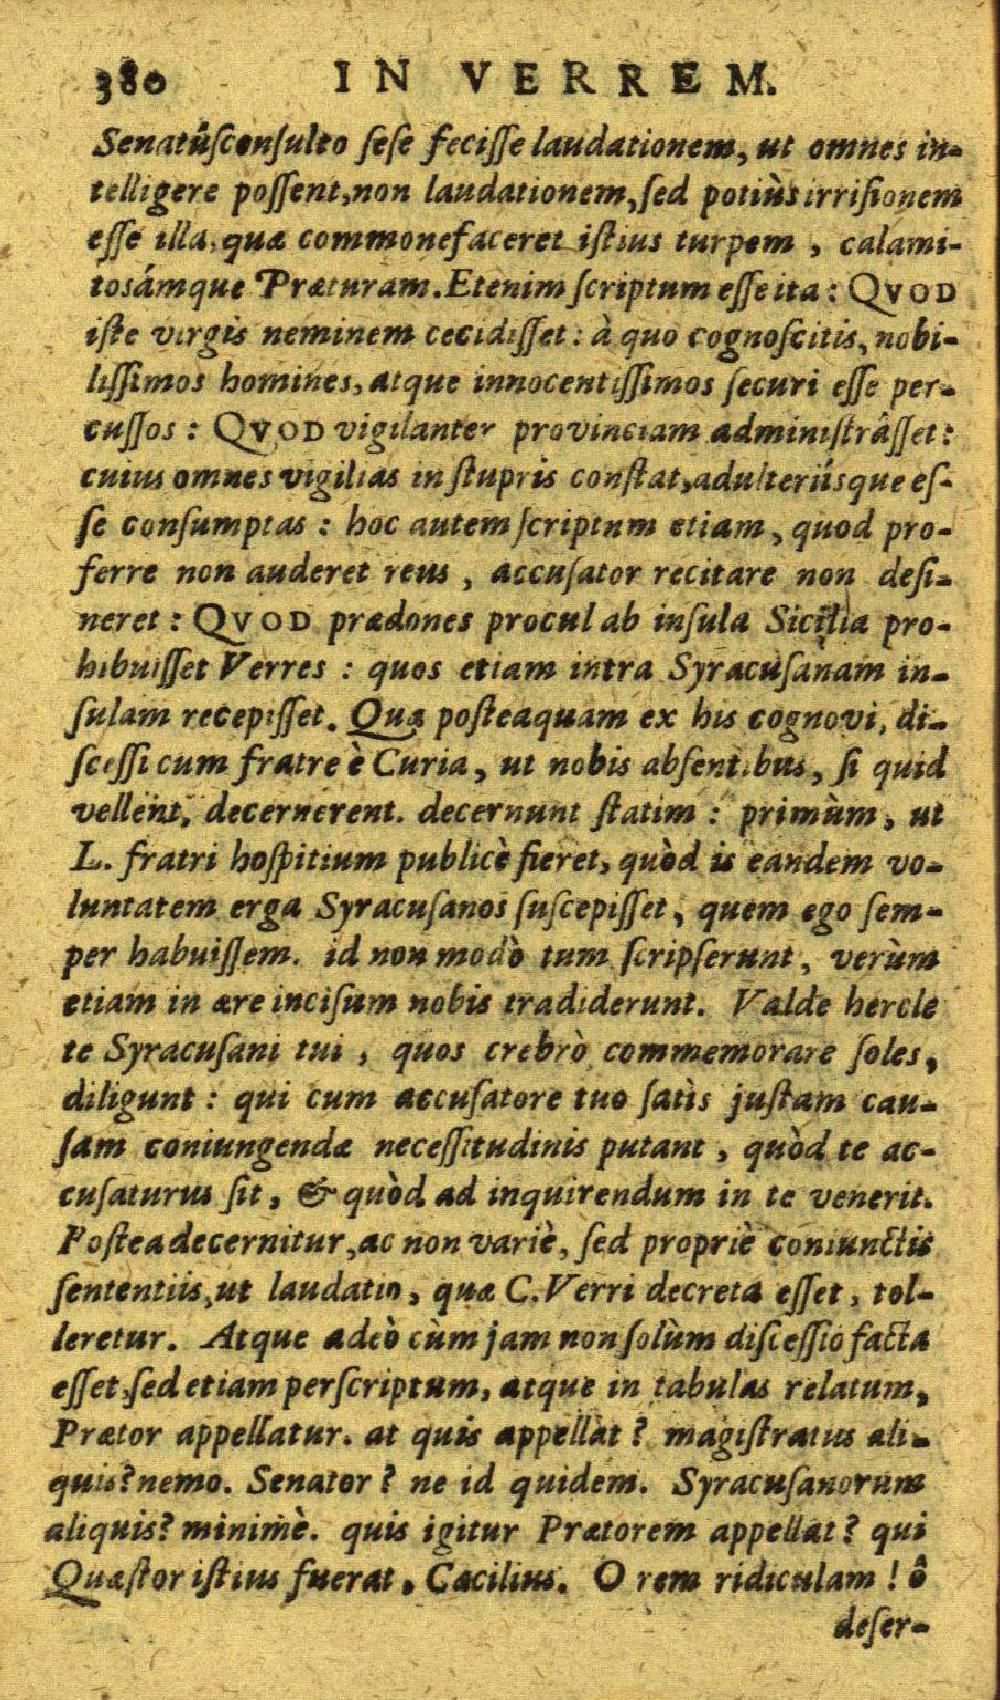 380 IN VERREM.
Senatûsconsulto sese fecisse laudationem, ut omnes in-
telligere possent, non laudationem, sed potiùs irrisionem
esse illa, quæ commonefaceret istius turpem, calami-
tosámque Præturam. Etenim scriptum esse ita: QVOD
iste virgis neminem cecidisset: à quo cognoscitis, nobi-
lissimos homines, atque innocentissimos securi esse per-
cussos: QVOD vigilanter provinciam administrâsset:
cuius omnes vigilias in stupris constat, adulteriísque es-
se consumptas: hoc autem scriptum etiam, quod pro-
ferre non auderet reus, accusator recitare non desi-
neret: QVOD prædones procul ab insula Sicilia pro-
hibuisset Verres: quos etiam intra Syracusanam in-
sulam recepisset. Quæ posteaquam ex his cognovi, di-
scessi cum fratre è Curia, ut nobis absentibus, si quid
vellent, decernerent. decernunt statim: primùm, ut
L. fratri hospitium publicè fieret, quòd is eandem vo-
luntatem erga Syracusanos suscepisset, quem ego sem-
per habuissem. id non modò tum scripserunt, verùm
etiam in ære incisum nobis tradiderunt. Valde hercle
te Syracusani tui, quos crebrò commemorare soles,
diligunt: qui cum accusatore tuo satìs justam cau-
sam coniungendæ necessitudinis putant, quòd te ac-
cusaturus sit, & quòd ad inquirendum in te venerit.
Postea decernitur, ac non variè, sed propriè coniunctis
sententiis, ut laudatio, quæ C. Verri decreta esset, tol-
leretur. Atque adeò cùm jam non solùm discessio facta
esset, sed etiam perscriptum, atque in tabulas relatum,
Prætor appellatur. at quis appellat? magistratus ali-
quis? nemo. Senator? ne id quidem. Syracusanorum
aliquis? minimè. quis igitur Prætorem appellat? qui
Quæstor istius fuerat, Cæcilius. O rem ridiculam! ô
deser-